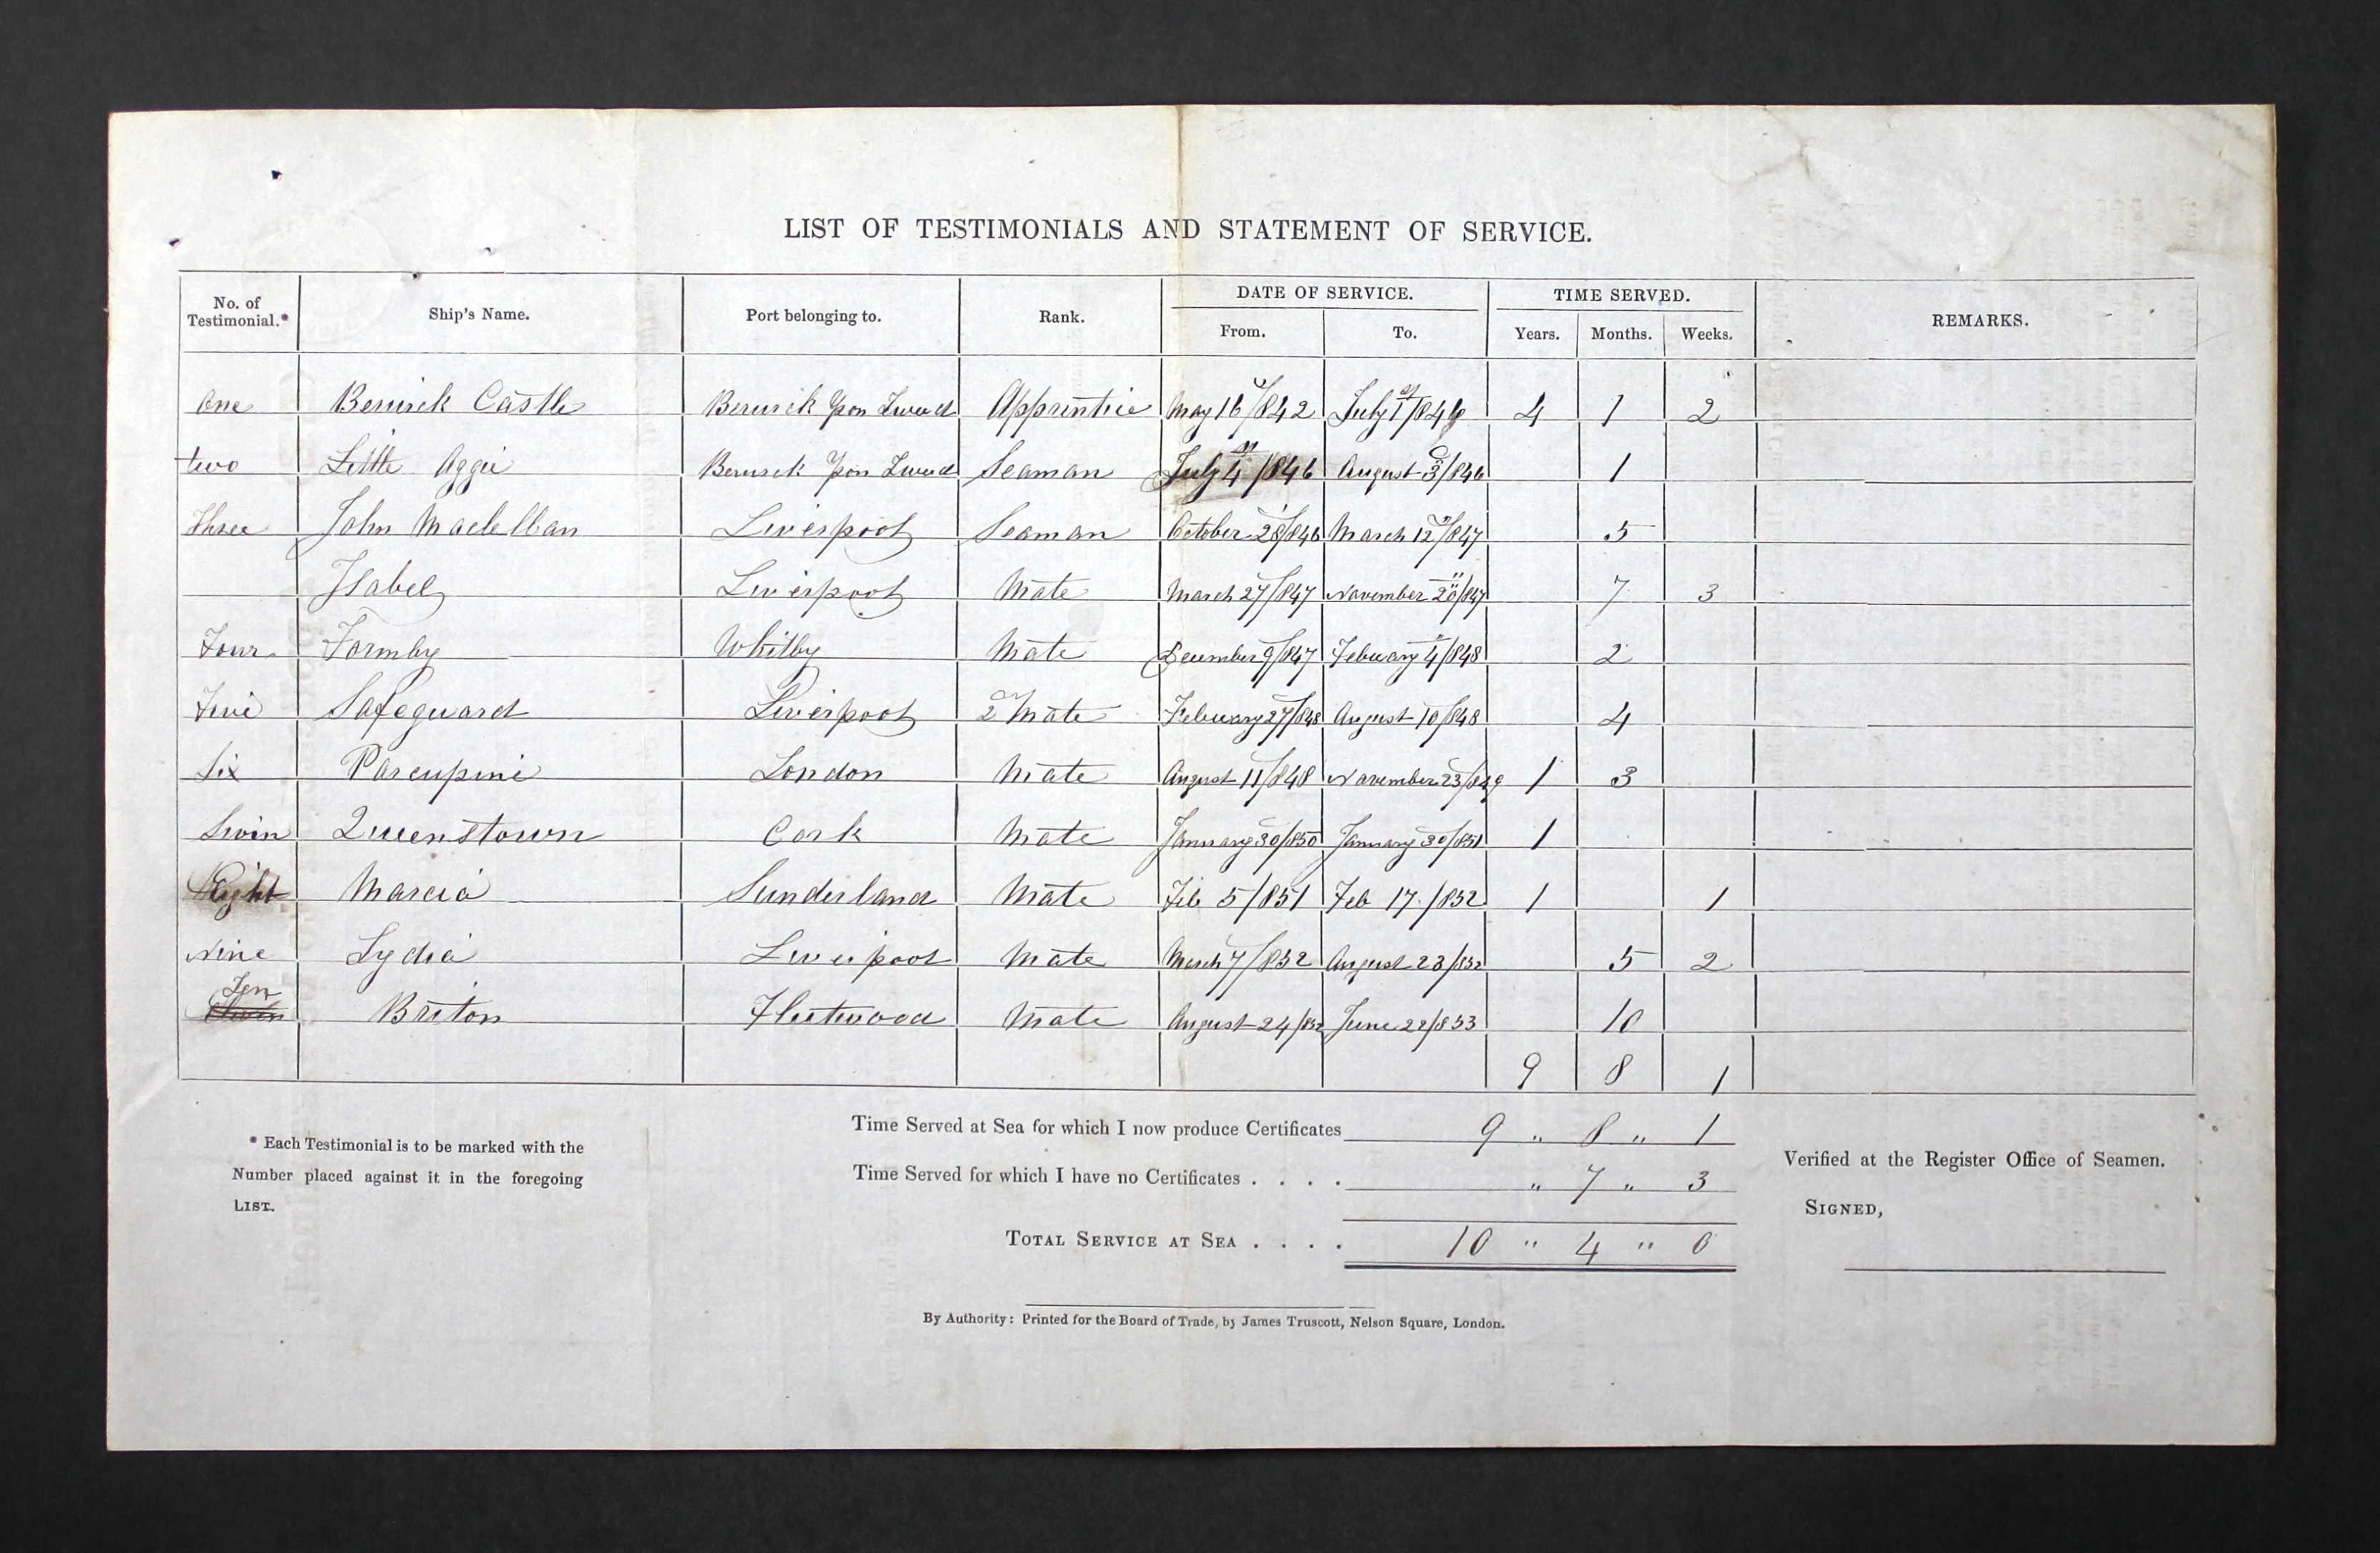 LIST OF TESTIMONIALS AND STATEMENT OF SERVICE.
No. of Testimonial.* Ship's Name. Port belonging to. Rank. DATE OF SERVICE. From. To. TIME SERVED. Years. Months. Weeks. REMARKS.
One Berwick Castle Berwick Upon Tweed Apprentice May 16/842 July 1st/846 4 1 2
two Little Aggie Berwick Upon Tweed Seaman July 4/846 August 3/846 1
Three John Maclellan Liverpool Seaman October 28/846 March 12/847 5
Isabel Liverpool Mate March 27/847 November 20/847 7 3
Four Formby Whitby Mate December 9/847 Febuary 4/848 2
Five Safeguard Liverpool 2 Mate Febuary 27/848 August 10/848 4
Six Porcupine London Mate August 11/848 November 23/849 1 3
Sevin Queenstown Cork Mate January 30/850 January 30/851 1
Eight Marcia Sunderland Mate Feb 5/851 Feb 17/852 1 1
Nine Lydia Liverpool Mate March 7/852 August 23/852 5 2
Ten
Briton Fleetwood Mate August 24/852 June 22/853 10
9 8 1
Time Served at Sea for which I now produce Certificates 9 " 8 " 1
Time Served for which I have no Certificates . . . . " 7 " 3
TOTAL SERVICE AT SEA . . . . 10 " 4 " 0
* Each Testimonial is to be marked with the
Number placed against it in the foregoing
LIST.
Verified at the Register Office of Seamen.
SIGNED,
By Authority: Printed for the Board of Trade, by James Truscott, Nelson Square, London.